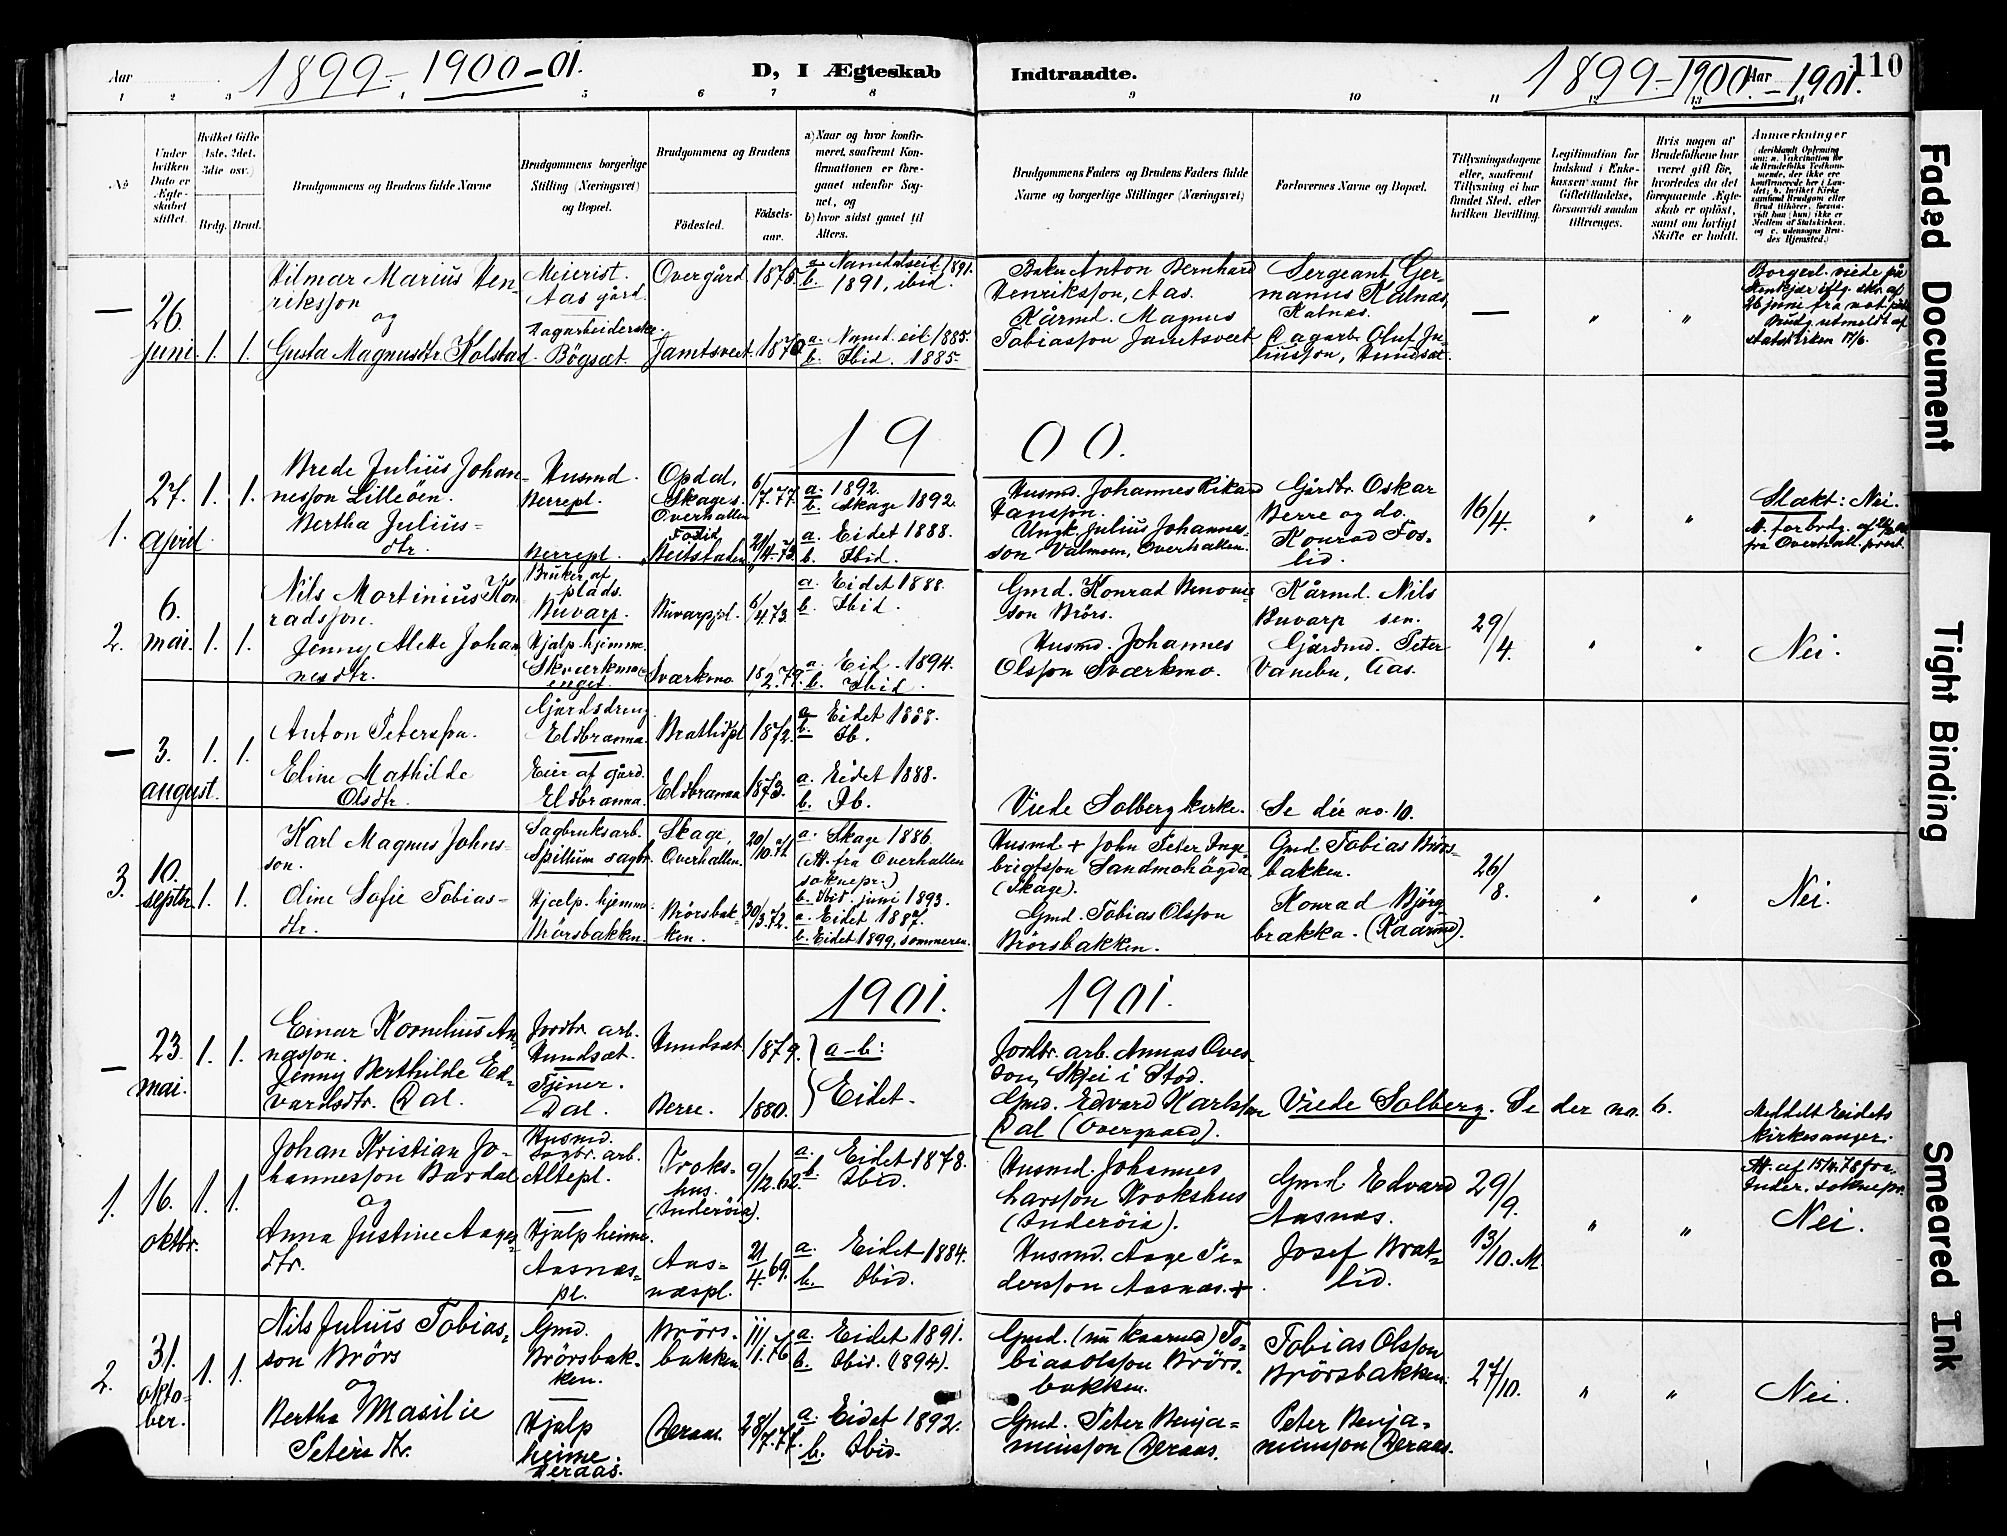 Aar 1899 - 1900 - 01. D, I Ægteskab Indtraadte. 1899 - 1900 - 1901. Aar 110
1 2 3 4 5 6 7 8 9 10 11 12 13 14
No
Under hvilken Dato er Ægteskabet stiftet.
Hvilket Gifte (1ste, 2det, 3die osv.)
Brdg. Brud.
Brudgommens og Brudens fulde Navne
Brudgommens borgerlige Stilling (Næringsvei) og Bopæl.
Brudgommens og Brudens
Födested. Födselsaar.
a) Naar og hvor konfirmeret, saafremt Konfirmationen er foregaaet udenfor Sognet, og
b) hvor sidst gaaet til Alters.
Brudgommens Faders og Brudens Faders fulde Navne og borgerlige Stillinger (Næringsvei)
Forlovernes Navne og Bopæl.
Tillysningsdagene eller, saafremt Tillysning ei har fundet Sted, efter hvilken Bevilling.
Legitimation for Indskud i Enkekassen samt for Giftetilladelse, forsaavidt saadan tiltrænges.
Hvis nogen af Brudefolkene har været gift før, hvorledes da det foregaaende Ægteskab er oplöst, samt om lovligt Skifte er holdt.
Anmærkninger
— 26 juni 1. 1.
Hilmar Marius Henriksson
og
Gusta Magnusdtr. Kolstad.
Meierist.
Aas gård.
Dagarbeiderske
Bögsæt.
Overgård 1875
Jamtsveet 1870
a. Namdalseid 1891.
b. 1891, ibid.
a. Namd.eid. 1885.
b. Ibid. 1885.
Baker Anton Bernhard
Henriksson, Aas.
Kårmd. Magnus
Tobiasson Jamtsveet
Sergeant Germanus Kalnæs,
Kalnæs.
Dagarb. Oluf Juliusson, Hundsæt
— " "
Borgerl. viede på
Stenkjær iflg. skr. af
26 juni fra not. publ.
Brudg. utmeldt af
statskirken 17/6.
1900.
1. 27. april 1. 1.
Brede Julius Johannesson Lilleöen.
Bertha Juliusdtr.
Husmd.
Berrepl.
Berrepl.
Opdal,
Skage s.
Overhallen
Födid
Beitstaden
6/7.77.
21/4.73.
a. 1892.
b. Skage 1892.
a. Eidet 1888.
b. Ibid.
Husmd. Johannes Rikard
Hansson.
Ungk. Julius Johannesson Valmoen, Overhallen.
Gårdbr. Oskar
Berre og do.
Konrad Foslid.
16/4. " "
Slækt: Nei.
fra Overhall. prest.
2. 6. mai. 1. 1.
Nils Martinius Konradsson.
Jenny Alette Johannesdtr.
Bruker af
plads.
Buvarp.
Hjælp. hjemme.
Skværkmoenget.
Buvarppl. 6/4.73.
Sværkmo 18/2.79.
a. Eidet 1888.
b. Ibid.
a. Eid. 1894.
b. Ibid.
Gmd. Konrad Benonison Brörs.
Husmd. Johannes
Olsson Sværkmo.
Kårmd. Nils
Buvarp sen.
Gårdmd. Peter
Vanebu, Aas.
29/4 " "
Nei.
— 3. august. 1. 1.
Anton Petersson.
Eline Mathilde
Olsdtr.
Gårdsdreng
Eldbranna.
Eier af gård.
Eldbranna.
Bratlidpl 1872.
Eldbranna 1873.
a. Eidet 1888.
b. Ib.
a. Eidet 1888.
b. Ib.
Viede Solberg kirke. Se dér no. 10.
3. 10. septbr. 1. 1.
Karl Magnus Johnsson.
Oline Sofie Tobiasdtr.
Sagbruksarb.
Spillum sagbr.
Hjælp. hjemme.
Brörsbakken.
Skage,
Overhallen.
Brörsbakken.
20/10.71
30/3.72.
a. Skage 1886.
(Att. fra Overhallen
soknepr.)
b. Ibid. juni 1893.
a. Eidet 1887.
b. Eidet 1899, sommeren.
Husmd + John Peter Ingebrigtsson Sandmohögda
(Skage).
Gmd. Tobias Olsson
Brörsbakken.
Gmd. Tobias Brörsbakken.
Konrad Björgbrækka. (Kaarmd).
26/8. " "
Nei.
1901. 1901.
— 23. mai. 1. 1.
Einar Kornelius Annasson.
Jenny Berthilde Edvardsdtr. Dal.
Jordbr. arb.
Hundsæt.
Tjener.
Dal.
Hundsæt 1879.
Berre. 1880.
a-b:
Eidet.
Jordbr. arb. Annas Oveson, Skjei i Stod.
Gmd. Edvard Karlsson
Dal (Overgaard).
Viede Solberg. Se der no. 6.
Meddelt Eidets
kirkesanger.
1. 16. oktbr. 1. 1.
Johan Kristian Johannesson Bardal
og
Anna Justine Aagesdtr.
Husmd.
Sagbr. arb.
Altepl.
Hjælp heime.
Aasnæspl.
Krokshus.
(Inderöia).
Aasnæspl.
9/12.62.
21/4.69.
a. Eidet 1878.
b. Ibid.
a. Eidet 1884.
b. Ibid.
Husmd. Johannes
Larsson Krokshus
(Inderöia).
Husmd. Aage Pedersson Aasnæs. +
Gmd Edvard
Aasnæs.
Josef Bratlid.
29/9.
13/10. M.
" "
Att. af 15/4.78 fra
Inder. soknepr.
Nei.
2. 31. oktober. 1. 1.
Nils Julius Tobiasson Brörs
og
Bertha Masilie
Petersdtr.
Gmd.
Brörsbakken.
Hjælp
heime.
Deraas.
Brörsbakken
Deraas.
11/1.76
28/7.77.
a. Eidet 1891.
b. Ibid. (1894).
a. Eidet 1892.
b. Ibid.
Gmd. (nu Kaarmd) Tobias Olsson Brörsbakken.
Gmd. Peter Benjaminsson Deraas.
Tobias Olsson
Brörsbakken.
Peter Benjaminsson Deraas.
27/10. " "
Nei.
Faded Document
Tight Binding
Smeared Ink